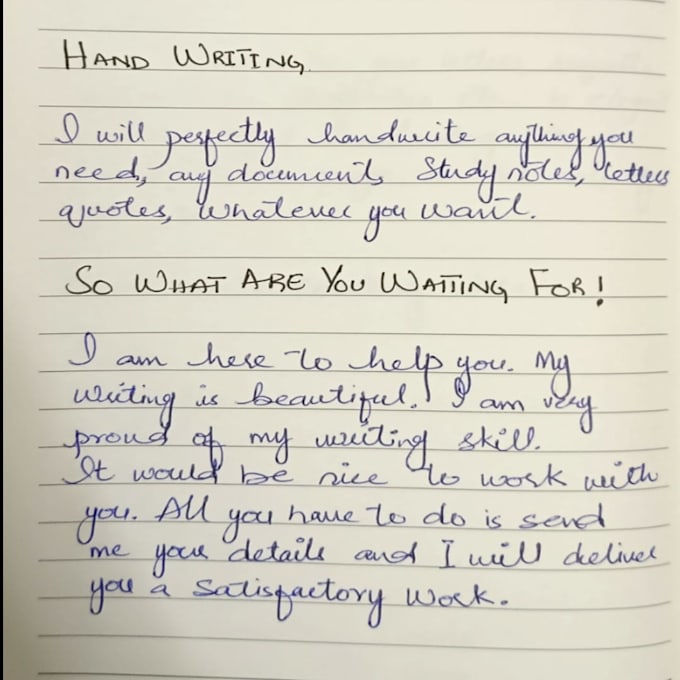 HAND WRITING
I will perfectly handwrite anything you
need, any document, Study notes, letters
quotes, whatever you want.
SO WHAT ARE YOU WAITING FOR!
I am here to help you. My
writing is beautiful. I am very
proud of my writing skill.
It would be nice to work with
you. All you have to do is send
me your details and I will deliver
you a satisfactory work.